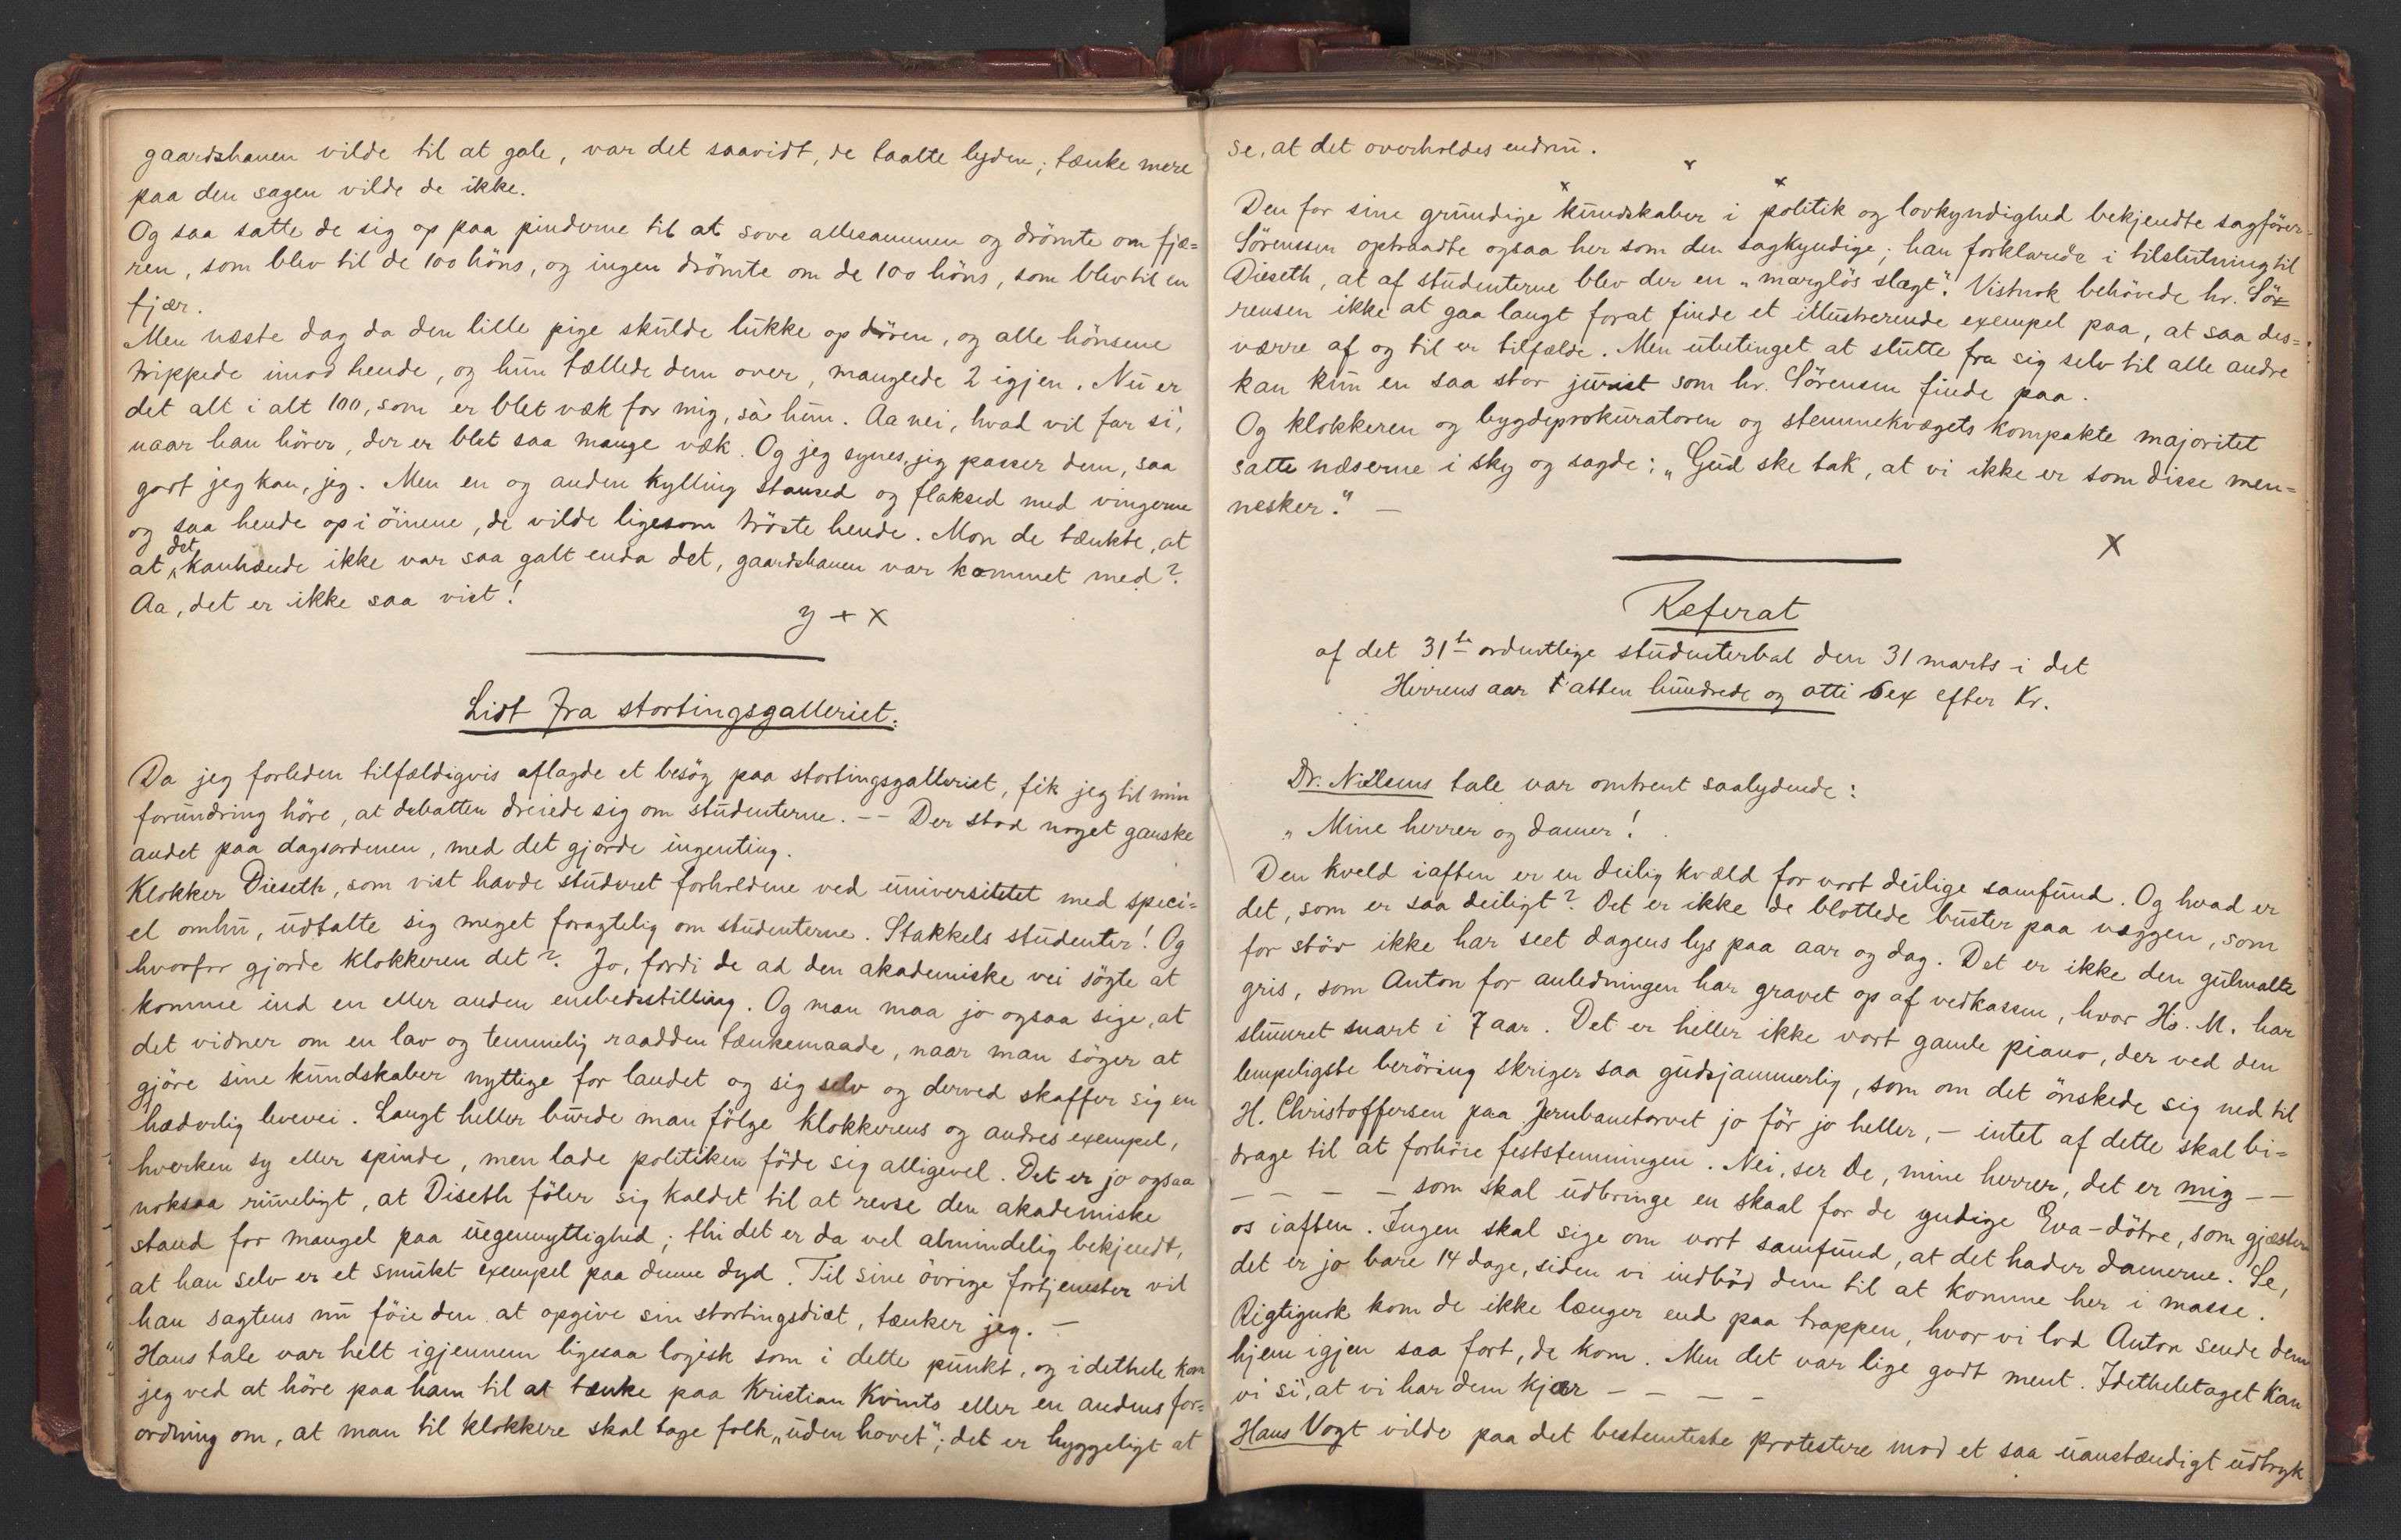 gaardshanen vilde til at gale, var det saavidt, de taalte lyden; tænke mere
paa den sagen vilde de ikke.
Og saa satte de sig op paa pinderne til at sove allesammen og drömte om fjæ=
ren, som blev til de 100 höns, og ingen drömte om de 100 höns, som blev til en
fjær.
Men næste dag da den lille pige skulde lukke op dören, og alle hönsene
trippede imod hende, og hun tællede dem over, manglede 2 igjen. Nu er
det alt i alt 100, som er blet væk for mig, sa' hun. Aa nei, hvad vil far si',
naar han hörer, der er blet saa mange væk. Og jeg synes, jeg passer dem, saa
godt jeg kan, jeg. Men en og anden kylling stansed og flaksed med vingerne
og saa hende op i öinene, de vilde ligesom tröste hende. Mon de tænkte, at
at det kanhænde ikke var saa galt enda det, gaardshanen var kommet med?
Aa, det er ikke saa vist!
y + x
Lidt fra stortingsgalleriet.
Da jeg forleden tilfældigvis aflagde et besög paa stortingsgalleriet, fik jeg til min
forundring höre, at debatten dreiede sig om studenterne. -- Der stod noget ganske
andet paa dagsordenen, med det gjorde ingenting.
Klokker Dieseth, som vist havde studeret forholdene ved universitetet med speci=
el omhu, udtalte sig meget foragtelig om studenterne. Stakkels studenter! Og
hvorfor gjorde klokkeren det? Jo, fordi de ad den akademiske vei sögte at
komme ind en eller anden embedsstilling. Og man maa jo ogsaa sige, at
det vidner om en lav og temmelig raadden tænkemaade, naar man söger at
gjöre sine kundskaber nyttige for landet og sig selv og derved skaffer sig en
hæderlig levevei. Langt heller burde man fölge klokkerens og andres exempel,
hverken sy eller spinde, men lade politiken föde sig alligevel. Det er jo ogsaa
noksaa rimeligt, at Diseth föler sig kaldet til at revse den akademiske
stand for mangel paa uegennyttighed; thi det er da vel almindelig bekjendt,
at han selv er et smukt exempel paa denne dyd. Til sine övrige fortjenester vil
han sagtens nu föie den at opgive sin stortingsdiæt, tænker jeg. —
Hans tale var helt igjennem ligesaa logisk som i dette punkt, og i dethele kom
jeg ved at höre paa ham til at tænke paa Kristian Kvints eller en andens for=
ordning om, at man til klokkere skal tage folk „uden hovet"; det er hyggeligt at
se, at det overholdes endnu.
x x x
Den for sine grundige kundskaber i politik og lovkyndighed bekjendte sagförer=
Sörenssen optraadte ogsaa her som den sagkyndige; han forklarede i tilslutning til
Dieseth, at af studenterne blev der en „marglös slægt". Vistnok behövede hr. Sör
rensen ikke at gaa langt forat finde et illustrerende exempel paa, at saa des=
værre af og til er tilfælde. Men ubetinget at slutte fra sig selv til alle andre
kan kun en saa stor jurist som hr. Sörensen finde paa.
Og klokkeren og bygdeprokuratoren og stemmekvægets kompakte majoritet
satte næserne i sky og sagde: „Gud ske tak, at vi ikke er som disse men=
nesker." —
X
Referat
af det 31te ordentlige studenterbal den 31 marts i det
Herrens aar atten hundrede og otti sex efter Kr.
Dr. Nielsens tale var omtrent saalydende:
„Mine herrer og damer!
Den kveld iaften er en deilig kvæld for vort deilige samfund. Og hvad er
det, som er saa deiligt? Det er ikke de blottede buster paa væggen, som
for stöv ikke har seet dagens lys paa aar og dag. Det er ikke den gulmalte
gris, som Anton for anledningen har gravet op af vedkassen, hvor Hs. M. har
slumret snart i 7 aar. Det er heller ikke vort gamle piano, der ved den
lempeligste beröring skriger saa gudsjammerlig, som om det önskede sig ned til
H. Christoffersen paa Jernbanetorvet jo för jo heller, — intet af dette skal bi=
drage til at forhöie feststemningen. Nei, ser De, mine herrer, det er mig --
— — — — som skal udbringe en skaal for de yndige Eva-dötre, som gjæster
os iaften. Ingen skal sige om vort samfund, at det hader damerne. Se,
det er jo bare 14 dage, siden vi indböd dem til at komme her i masse.
Rigtignok kom de ikke længer end paa trappen, hvor vi lod Anton sende dem
hjem igjen saa fort, de kom. Men det var lige godt ment. Idetheletaget kan
vi si', at vi har dem kjær — — — —
Hans Vogt vilde paa det bestemteste protestere mod et saa uanstændigt udtryk